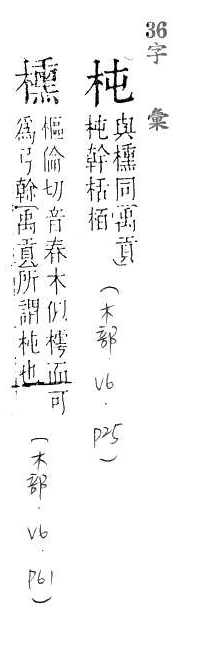 36
字彙
杶 與櫄同禹貢
杶幹栝栢
(木部.V6.P25)
櫄 樞倫切音春木似樗而可
爲弓榦禹貢所謂杶也
(木部.V6.P61)